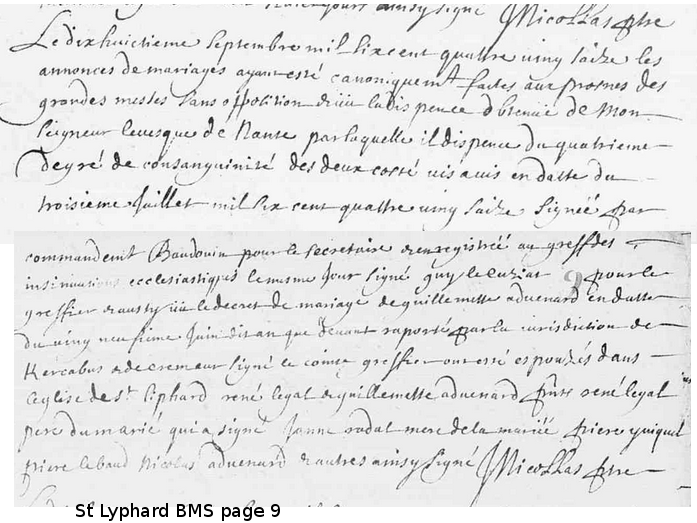 ainsy signé J Nicollas ptre
Le dix huictieme Septembre mil six cent quattre vinq saize les
annonces de mariages ayant esté canoniquem^t faites aux prosnes des
grandes messes sans oppossition & veu la dispence obtenüe de Mon-
seigneur levesque de Nante par laquelle il dispence du quatrieme
degré de consanguinité des deux costé vis a vis en datte du
troisieme Juillet mil six cent quattre vinq saize Signéé par
commandemt Baudouin pour le secretaire & enregistréé au greff des
insinuations ecclesiastiqes le mesme Jour signé guy pour le
greffier & aussy veu le decret de mariage de guillemette aduenard en datte
du vinq neufieme Juin dit an que devant raporté par la jurisdiction de
Kercabus & de cremeur signé le comte greffier ont esté espousés dans
leglise de St liphard rené legal & guillemette aduenard pnts rené legal
pere du marié qui a signé Janne rodal mere de la mariéé piere yuiquel
piere lebaud Nicolas aduenard & autres ainsy signé J Nicollas ptre
St Lyphard BMS page 9